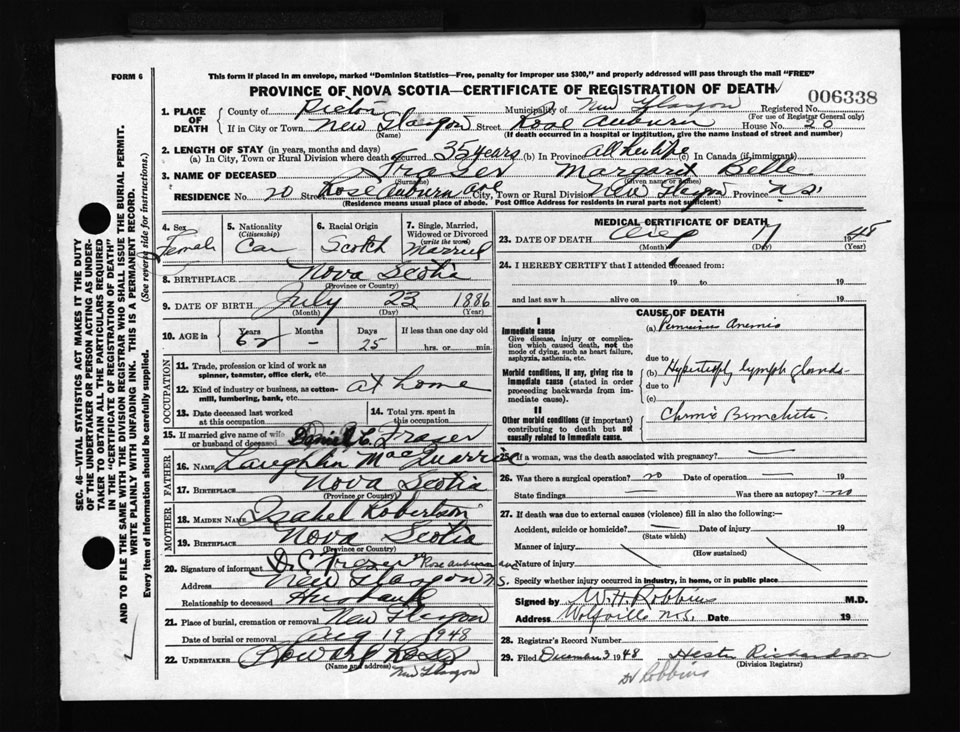 FORM 6
This form if placed in an envelope, marked "Dominion Statistics—Free, penalty for improper use $300," and properly addressed will pass through the mail "FREE"
PROVINCE OF NOVA SCOTIA—CERTIFICATE OF REGISTRATION OF DEATH
006338
1. PLACE OF DEATH
County of Pictou Municipality of New Glasgow Registered No.
(For use of Registrar General only)
If in City or Town New Glasgow Street Rose Auburn House No. 20
(Name) (If death occurred in a hospital or institution, give the name instead of street and number)
2. LENGTH OF STAY (in years, months and days)
(a) In City, Town or Rural Division where death occurred 35 years (b) In Province all her life (c) In Canada (if immigrant)
3. NAME OF DECEASED Fraser Margaret Belle
(Surname) (Given name or names)
RESIDENCE No. 20 Street Rose Auburn Ave City, Town or Rural Division New Glasgow Province N.S.
(Residence means usual place of abode. Post Office Address for residents in rural parts not sufficient)
4. Sex
Female
5. Nationality
(Citizenship)
Can
6. Racial Origin
Scotch
7. Single, Married, Widowed or Divorced
(write the word)
Married
8. BIRTHPLACE Nova Scotia
(Province or Country)
9. DATE OF BIRTH July 23 1886
(Month) (Day) (Year)
10. AGE in Years Months Days If less than one day old
62 - 25 hrs. or min.
OCCUPATION
11. Trade, profession or kind of work as
spinner, teamster, office clerk, etc.
12. Kind of industry or business, as cotton-
mill, lumbering, bank, etc. at home
13. Date deceased last worked
at this occupation
14. Total yrs. spent in
this occupation
15. If married give name of wife
or husband of deceased Daniel C. Fraser
FATHER
16. NAME Laughlin MacQuarrie
17. BIRTHPLACE Nova Scotia
(Province or Country)
MOTHER
18. MAIDEN NAME Isabel Robertson
19. BIRTHPLACE Nova Scotia
(Province or Country)
20. Signature of informant D. C. Fraser Rose auburn ave
Address New Glasgow N.S.
Relationship to deceased Husband
21. Place of burial, cremation or removal New Glasgow
Date of burial or removal Aug 19 1948
22. UNDERTAKER Howard
(Name and address) New Glasgow
MEDICAL CERTIFICATE OF DEATH
23. DATE OF DEATH Aug 17 1948
(Month) (Day) (Year)
24. I HEREBY CERTIFY that I attended deceased from:
19 to 19
and last saw h alive on 19
CAUSE OF DEATH
I
Immediate cause
Give disease, injury or complica-
tion which caused death, not the
mode of dying, such as heart failure,
asphyxia, asthenia, etc.
(a) Pernicious Anemia
due to
Morbid conditions, if any, giving rise to
immediate cause (stated in order
proceeding backwards from im-
mediate cause).
(b) Hypertrophy lymph glands
due to
(c)
II
Other morbid conditions (if important)
contributing to death but not
causally related to immediate cause.
Chronic Bronchitis.
25. If a woman, was the death associated with pregnancy? —
26. Was there a surgical operation? no Date of operation — 19
State findings — Was there an autopsy? no
27. If death was due to external causes (violence) fill in also the following:—
Accident, suicide or homicide? — Date of injury 19
(State which)
Manner of injury
(How sustained)
Nature of injury
Specify whether injury occurred in industry, in home, or in public place
Signed by W. H. Robbins M.D.
Address Wolfville N.S. Date 19
28. Registrar's Record Number
29. Filed December 3 1948 Hester Richardson
(Division Registrar)
Dr Robbins
SEC. 46—VITAL STATISTICS ACT MAKES IT THE DUTY
OF THE UNDERTAKER OR PERSON ACTING AS UNDER-
TAKER TO OBTAIN ALL THE PARTICULARS REQUIRED
IN THE "CERTIFICATE OF REGISTRATION OF DEATH"
AND TO FILE THE SAME WITH THE DIVISION REGISTRAR WHO SHALL ISSUE THE BURIAL PERMIT.
WRITE PLAINLY WITH UNFADING INK. THIS IS A PERMANENT RECORD.
Every item of information should be carefully supplied. (See reverse side for instructions.)